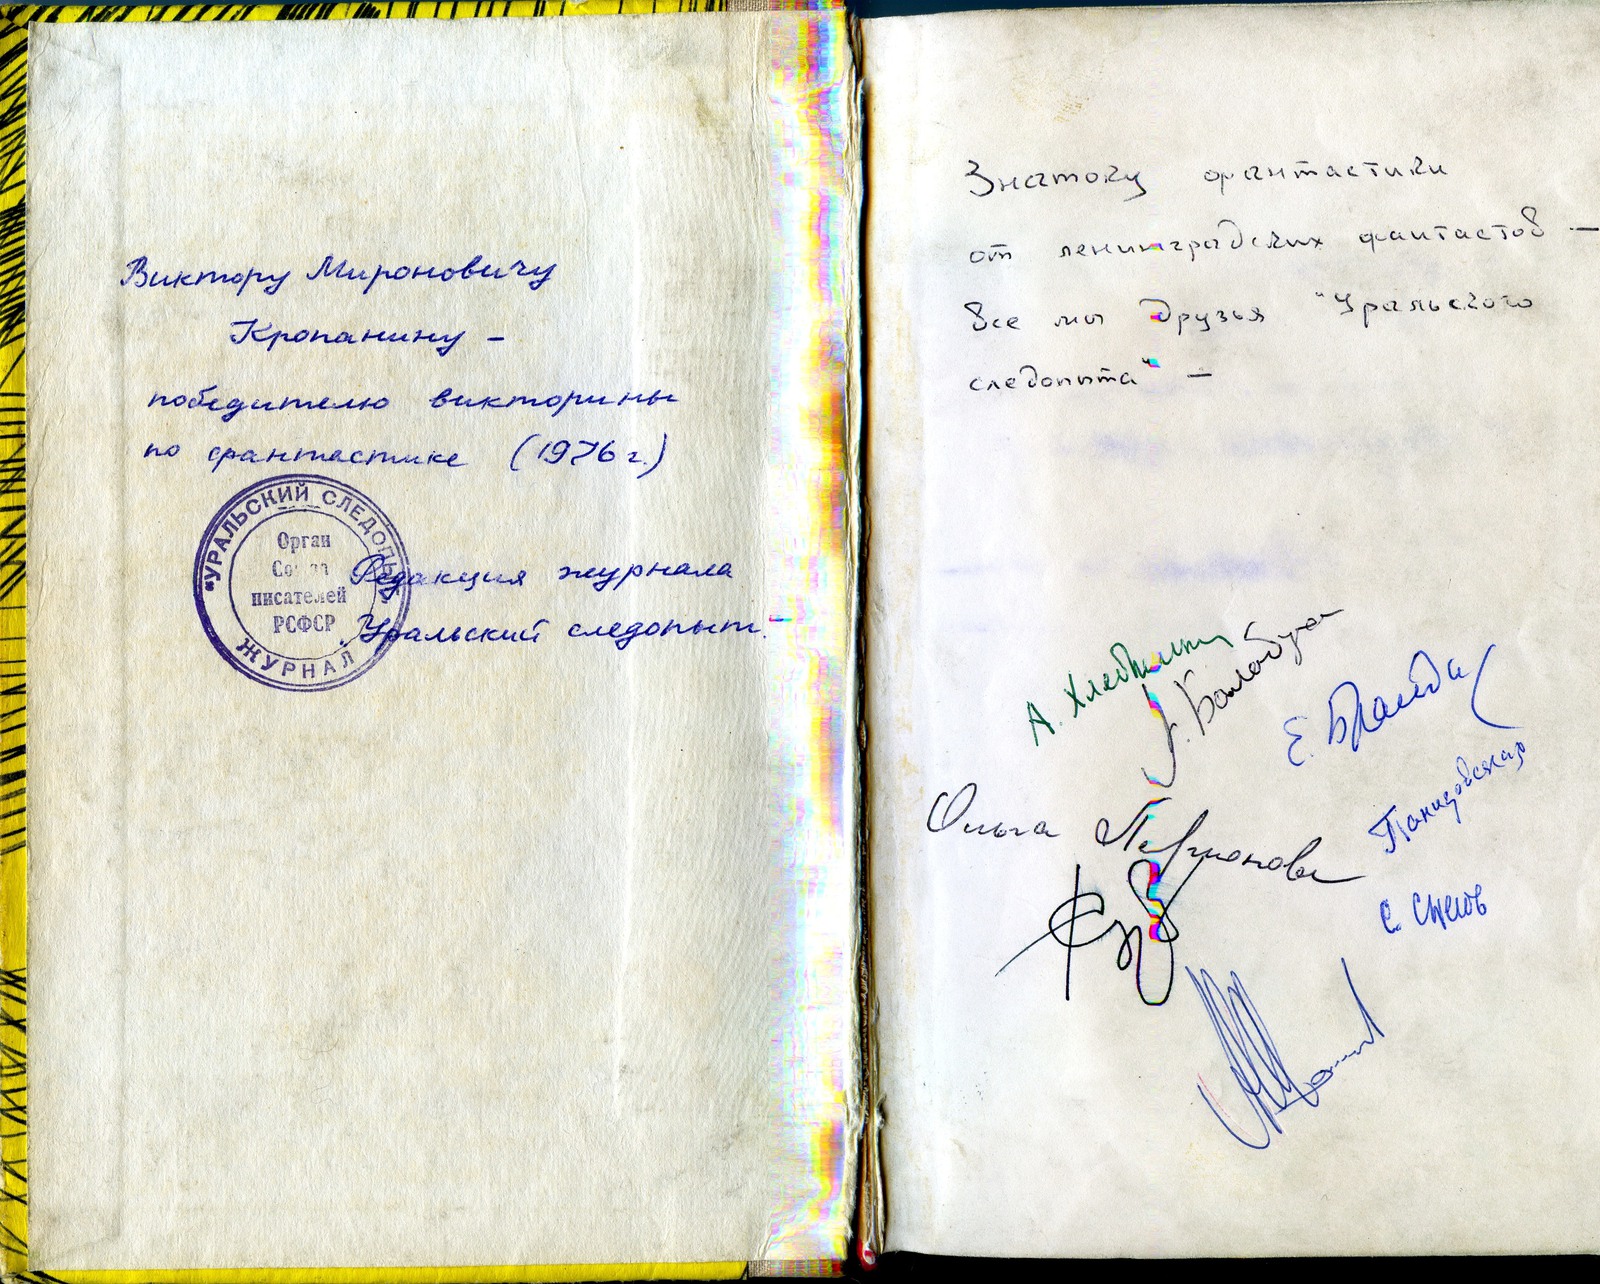 Виктору Мироновичу
Кропанину –
победителю викторины
по фантастике (1976 г.)
"УРАЛЬСКИЙ СЛЕДОПЫТ"
Орган
Союза
писателей
РСФСР
ЖУРНАЛ
Редакция журнала
"Уральский следопыт".
Знатоку фантастики
от ленинградских фантастов –
все мы друзья "Уральского
следопыта" –
А.
Балабуха
Е. Брандис
Ольга Ларионова
С. Снегов